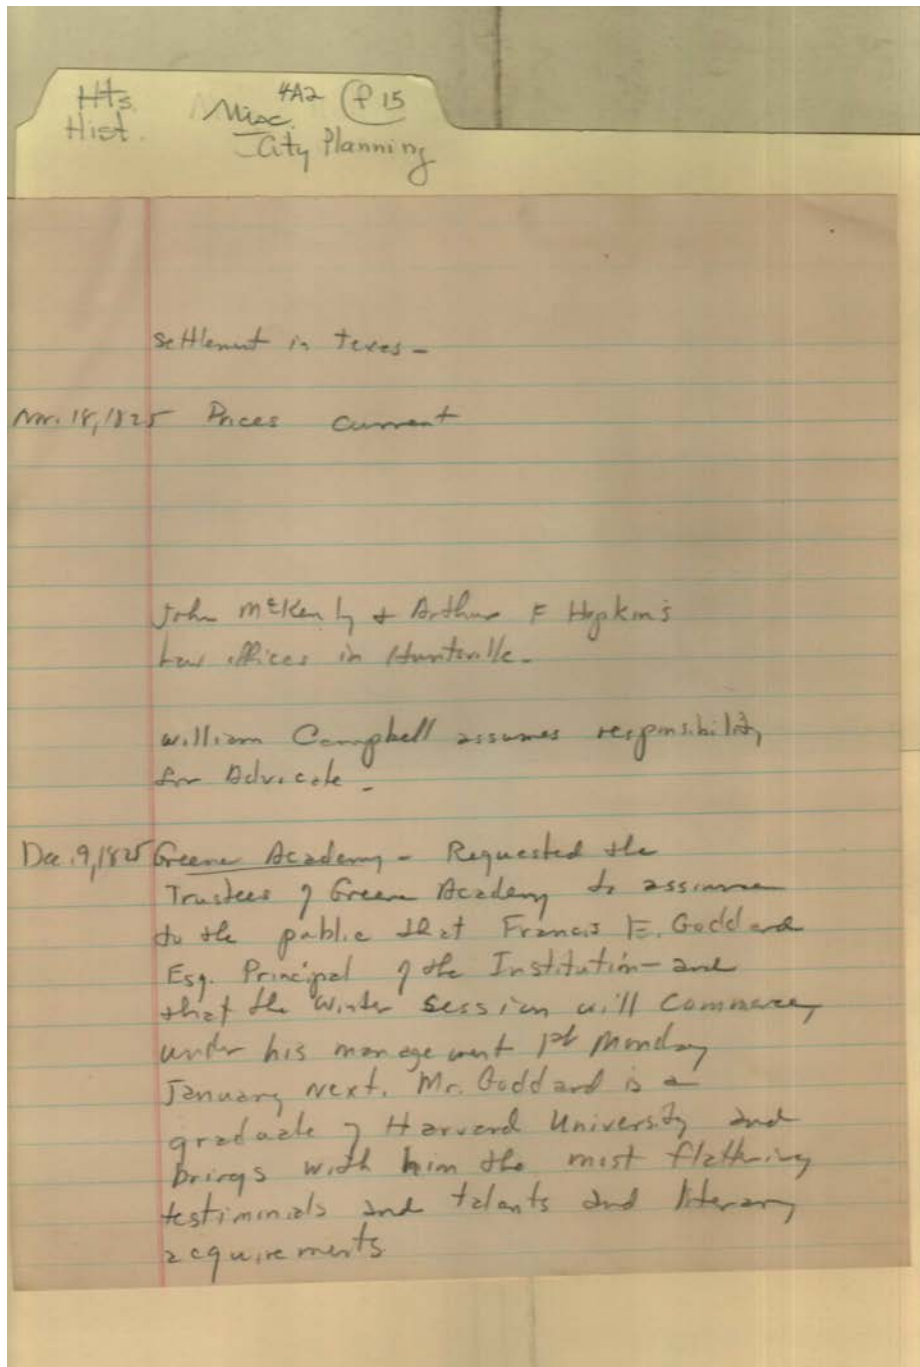 Hts. Hist.
Misc. 4A2 (f 15
City Planning
Settlement in Texas -
Nov. 18, 1825 Prices current
John McKenly & Arthur F Hopkins
Law offices in Huntsville.
William Campbell assumes responsibility
for Advocate -
Dec. 9, 1825 Greene Academy - Requested the
Trustees of Greene Academy to
to the public that Francis E. Goddard
Esq. Principal of the Institution - and
that the winter session will commence,
under his management 1st Monday
January next. Mr. Goddard is a
graduate of Harvard University and
brings with him the most flattering
testiminials and talants and literary
acquirements